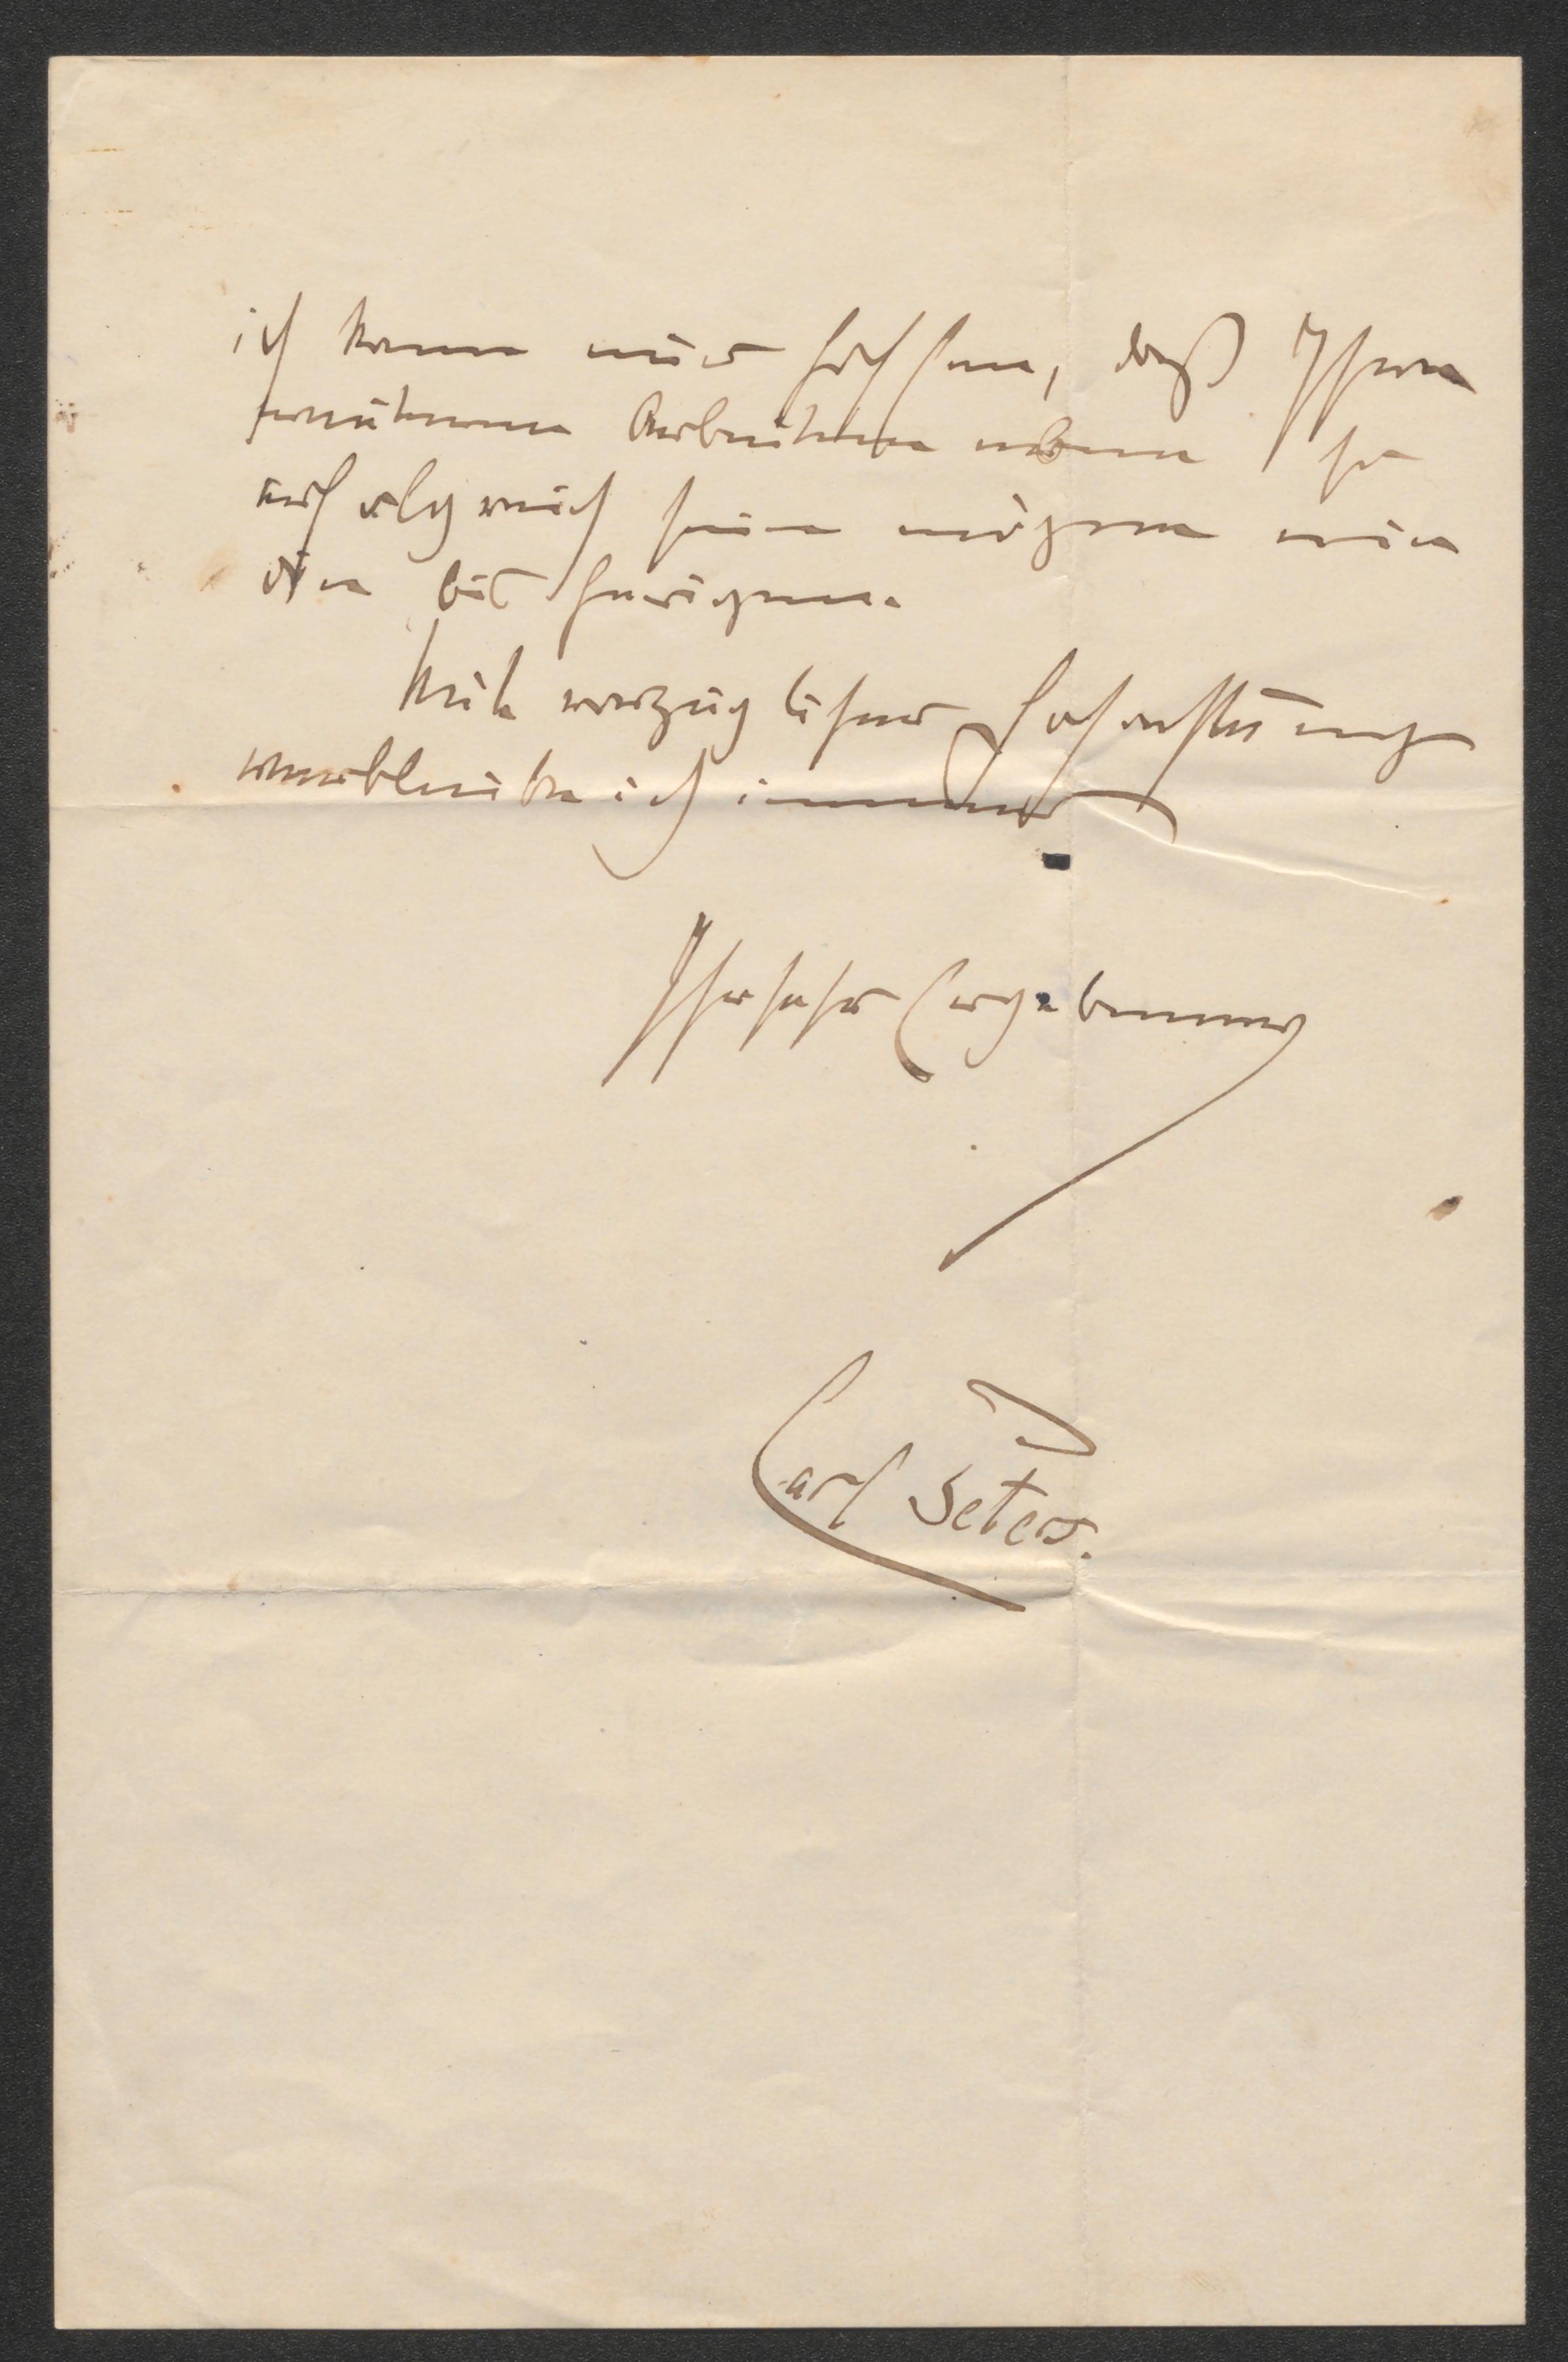 ich kann nur hoffen, daß Ihre
weiteren Arbeiten eben so
erfolgreich sein mögen wie
die bisherigen.
Mit vorzüglicher Hochachtung
verbleibe ich immer
Ihr sehr Ergebener
Carl Peters.